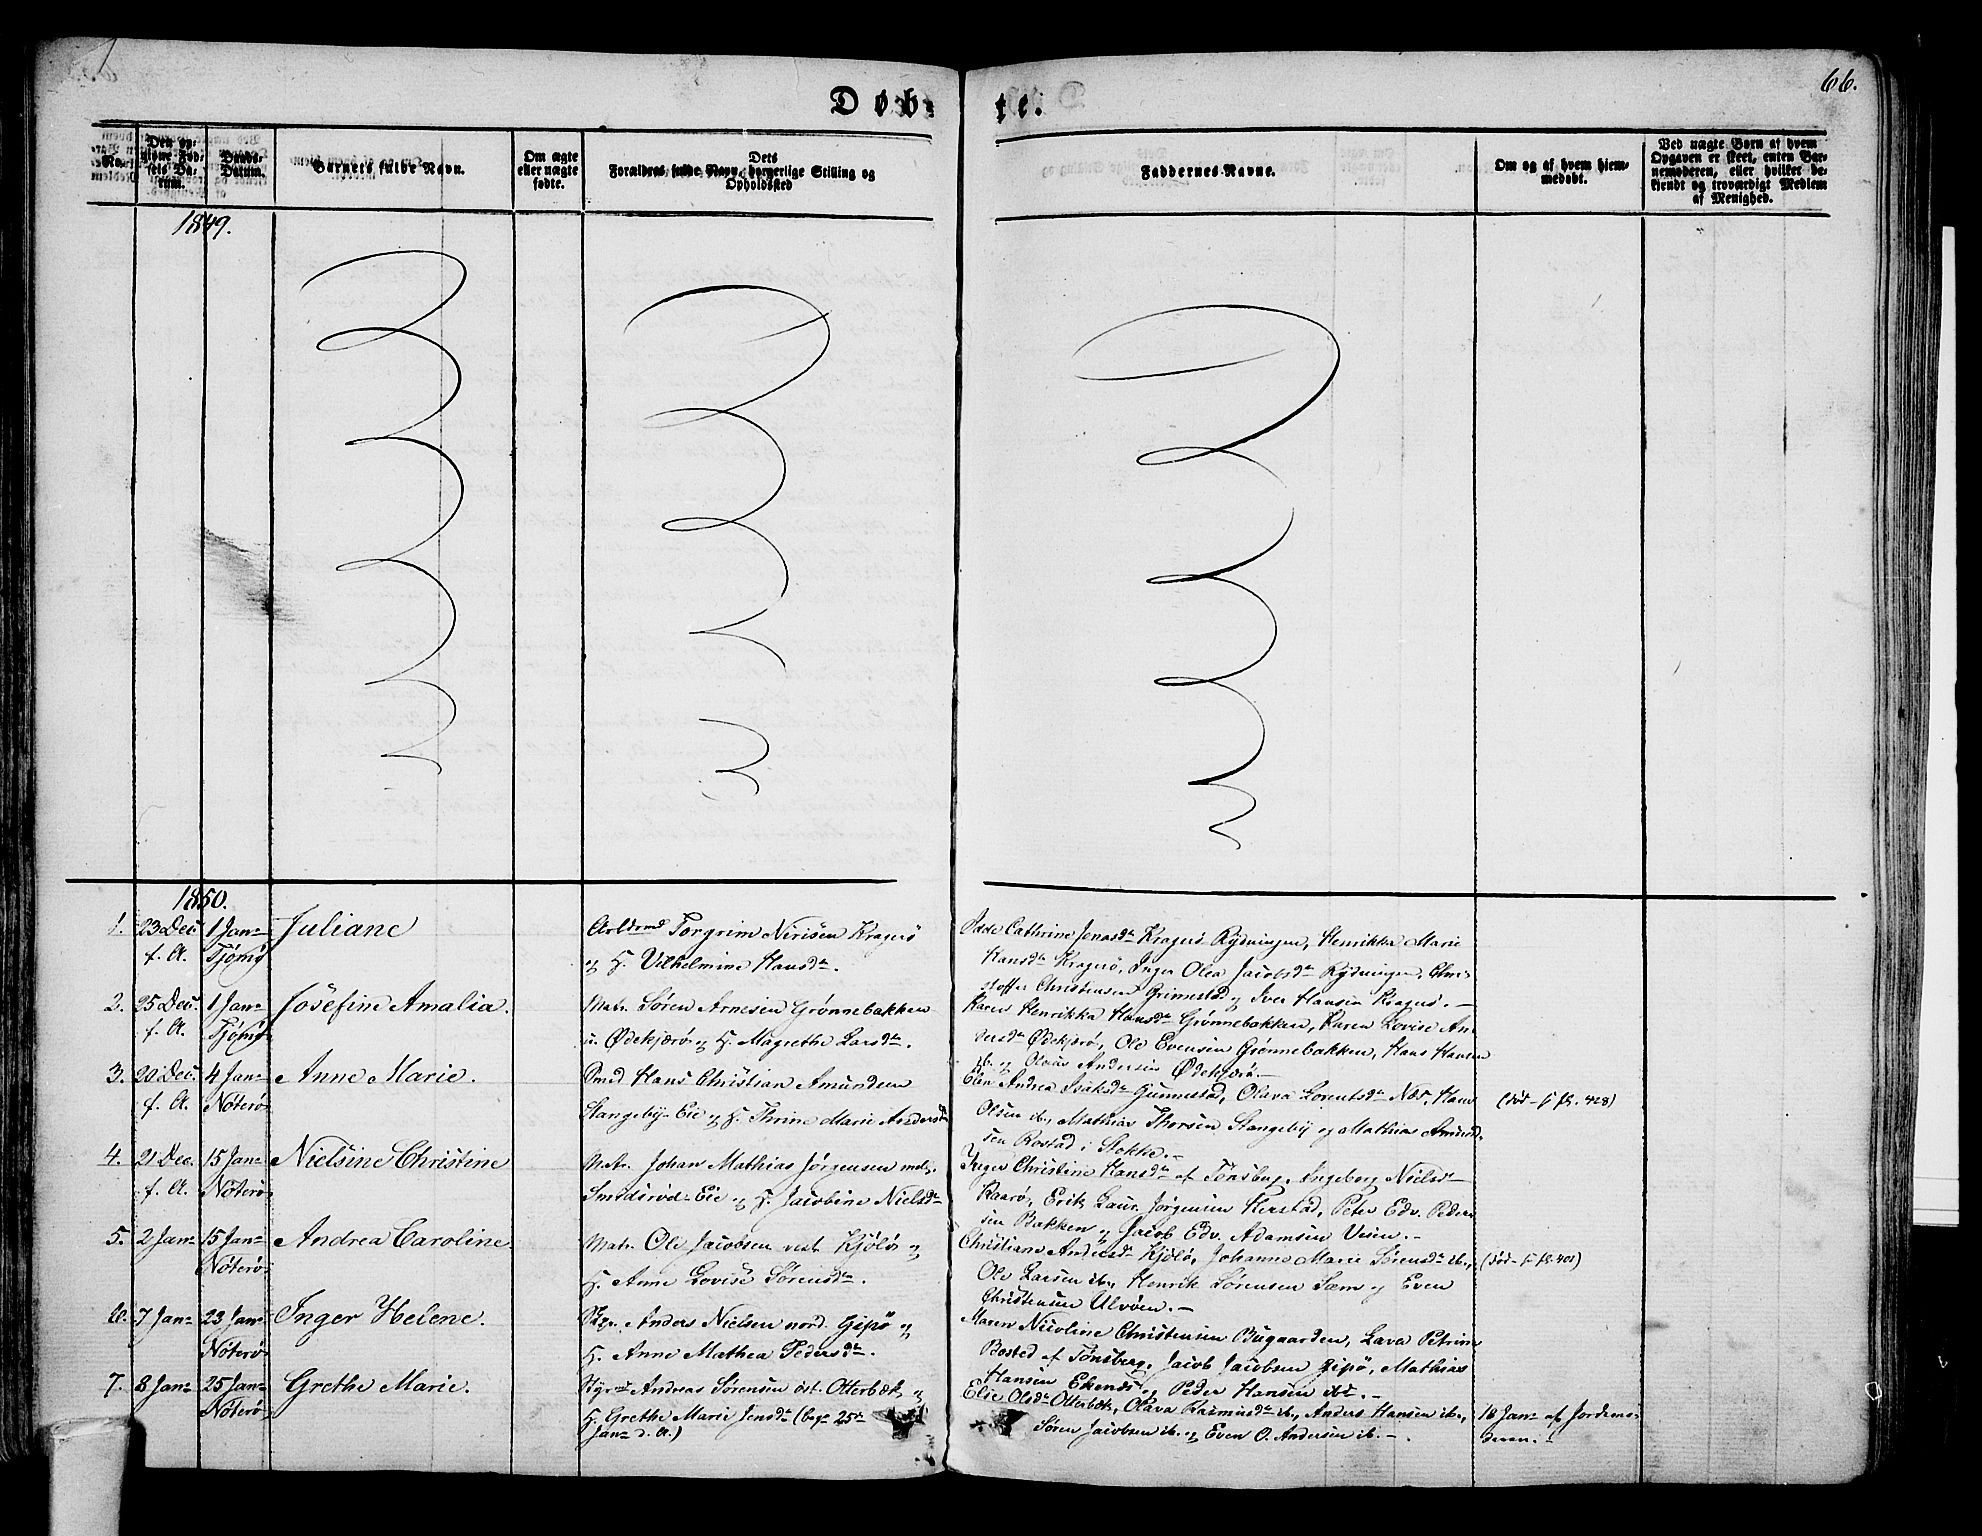 66.
Døb- te.
No.
Den opgivne Fødsels Datum.
Daabs-Datum.
Barnets fulde Navn.
Om ægte eller uægte fødte.
Dets Forældres fulde Navn, borgerlige Stilling og Opholdssted
Faddernes Navne.
Om og af hvem hjemmedøbt.
Ved uægte Børn af hvem Opgaven er skeet, enten Barnemoderen, eller hvilket bekjendt og troværdigt Medlem af Menighed.
1849.
1850.
1. 23 Dec. 1 Jan. Juliane
f. A. Tjømø
Torgrim Nirisen Kragerø
og H. Vilhelmine Hansd.
Cathrine Jonasd. Kragerø Rydningen, Henrikka Marie
Hansd. Kragerø, Inger Olea Jacobsd. Rydningen, Chri-
stoffer Christensen Grimestad og Iver Hansen Kragerø. —
2. 25 Dec. 1 Jan. Josefine Amalia.
f. A. Tjømø
Matr. Søren Arnesen Grønnebakken
u. Ødekjærø og H. Magrethe Larsd.
Karen Henrikka Hansd. Grønnebakken, Karen Lovise An-
dersd. Ødekjærø, Ole Evensen Grønnebakken, Hans Hansen
ib. og Olaus Andersen Ødekjærø. —
3. 20 Dec. 4 Jan. Anne Marie.
f. A. Nøterø
Smed Hans Christian Amundsen
Stangeby-Eie og H. Thrine Marie Andersd.
Elen Andrea Isaksd. Gunnestad, Olava Lorentsd. Næs, Hans
Olsen ib., Mathias Thorsen Stangeby og Mathias Amund-
sen Rostad i Stokke. —
(død - f. 428)
4. 21 Dec. 15 Jan. Nielsine Christine
f. A. Nøterø
Matr. Johan Mathias Jørgensen mel.
Smidsrød-Eie og H. Jacobine Nielsd.
Inger Christine Hansd. af Tønsberg, Ingeborg Nielsd.
Kaarø, Erik Laur. Jørgensen Herstad, Peter Edv. Peder-
sen Bakken og Jacob Edv. Adamsen Vesen. —
5. 2 Jan. 15 Jan. Andrea Caroline.
Nøterø
Matr. Ole Jacobsen vest. Kjøløs og
H. Anne Lovise Sørensd.
Christiane Andersd. Kjøløs, Johanne Marie Sørensd. ib.,
Ole Larsen ib., Henrik Sørensen Sæm og Even
Christensen Ulvøen. —
(død - f. 401)
6. 7 Jan. 23 Jan. Inger Helene.
Nøterø
Styr. Anders Nielsen nord. Gipø og
H. Anne Mathea Pedersd.
Maren Nicoline Christensen Bugaarden, Lava Petrine
Bosted af Tønsberg, Jacob Jacobsen Gipø, Mathias
Hansen Ekenæs og Peder Hansen ib. —
7. 8 Jan. 25 Jan. Grethe Marie.
Nøterø
Styr. Andreas Sørensen øst. Otterbæk og
H. Grethe Marie Jensd. (beg. 25de
Jan. d. A.)
Elie Olsd. Otterbæk, Olava Rasmusd. ib., Anders Hansen ib.,
Søren Jacobsen ib. og Even O. Andersen ib. —
18 Jan. af Jordemo-
deren. —